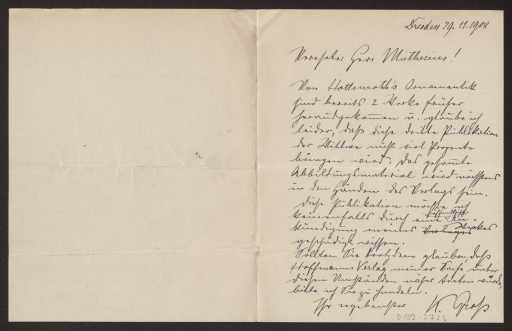 Dresden 29.11.1908
Verehrter Herr Muthesius!
Von Hottenroth's Ornamentik
sind bereits 2 Werke früher
herausgekommen u. glaube ich
leider, daß diese dritte Publikation
der Stillen nicht viel Prozente
bringen wird. Das gesamte
Abbildungsmaterial wird nächstens
in den Händen des Verlags sein.
Diese Publikation möchte ich
keinenfalls durch eine
kündigung meines Werkes
geschädigt wissen.
Sollten Sie trotzdem glauben, daß
Hoffmanns Verlag meiner Sache unter
diesen Umständen näher treten würde,
bitte ich Sie zu handeln.
Ihr ergebenster K. Groß